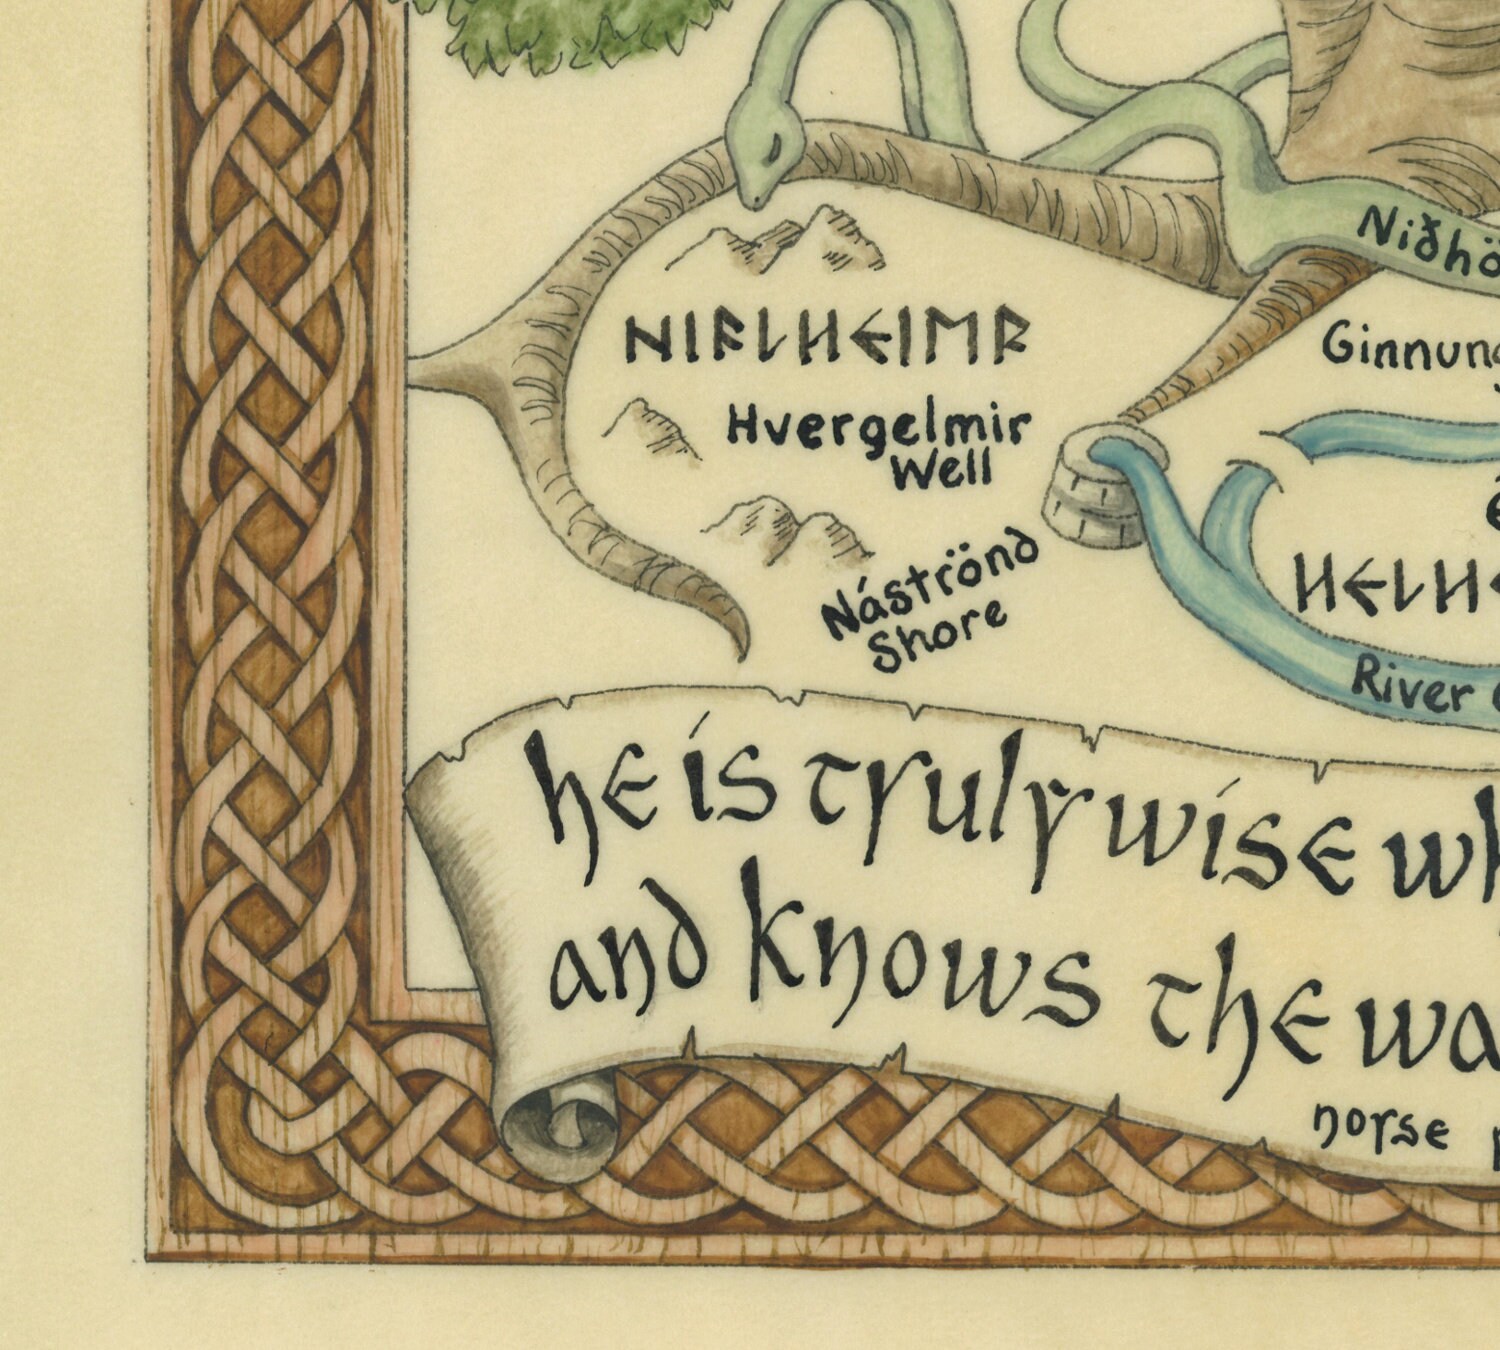 Niðhö
NIFLHEIMR
Ginnung
Hvergelmir
Well
HELHE
Náströnd
Shore
River
he is truly wise wh
and knows the wa
norse